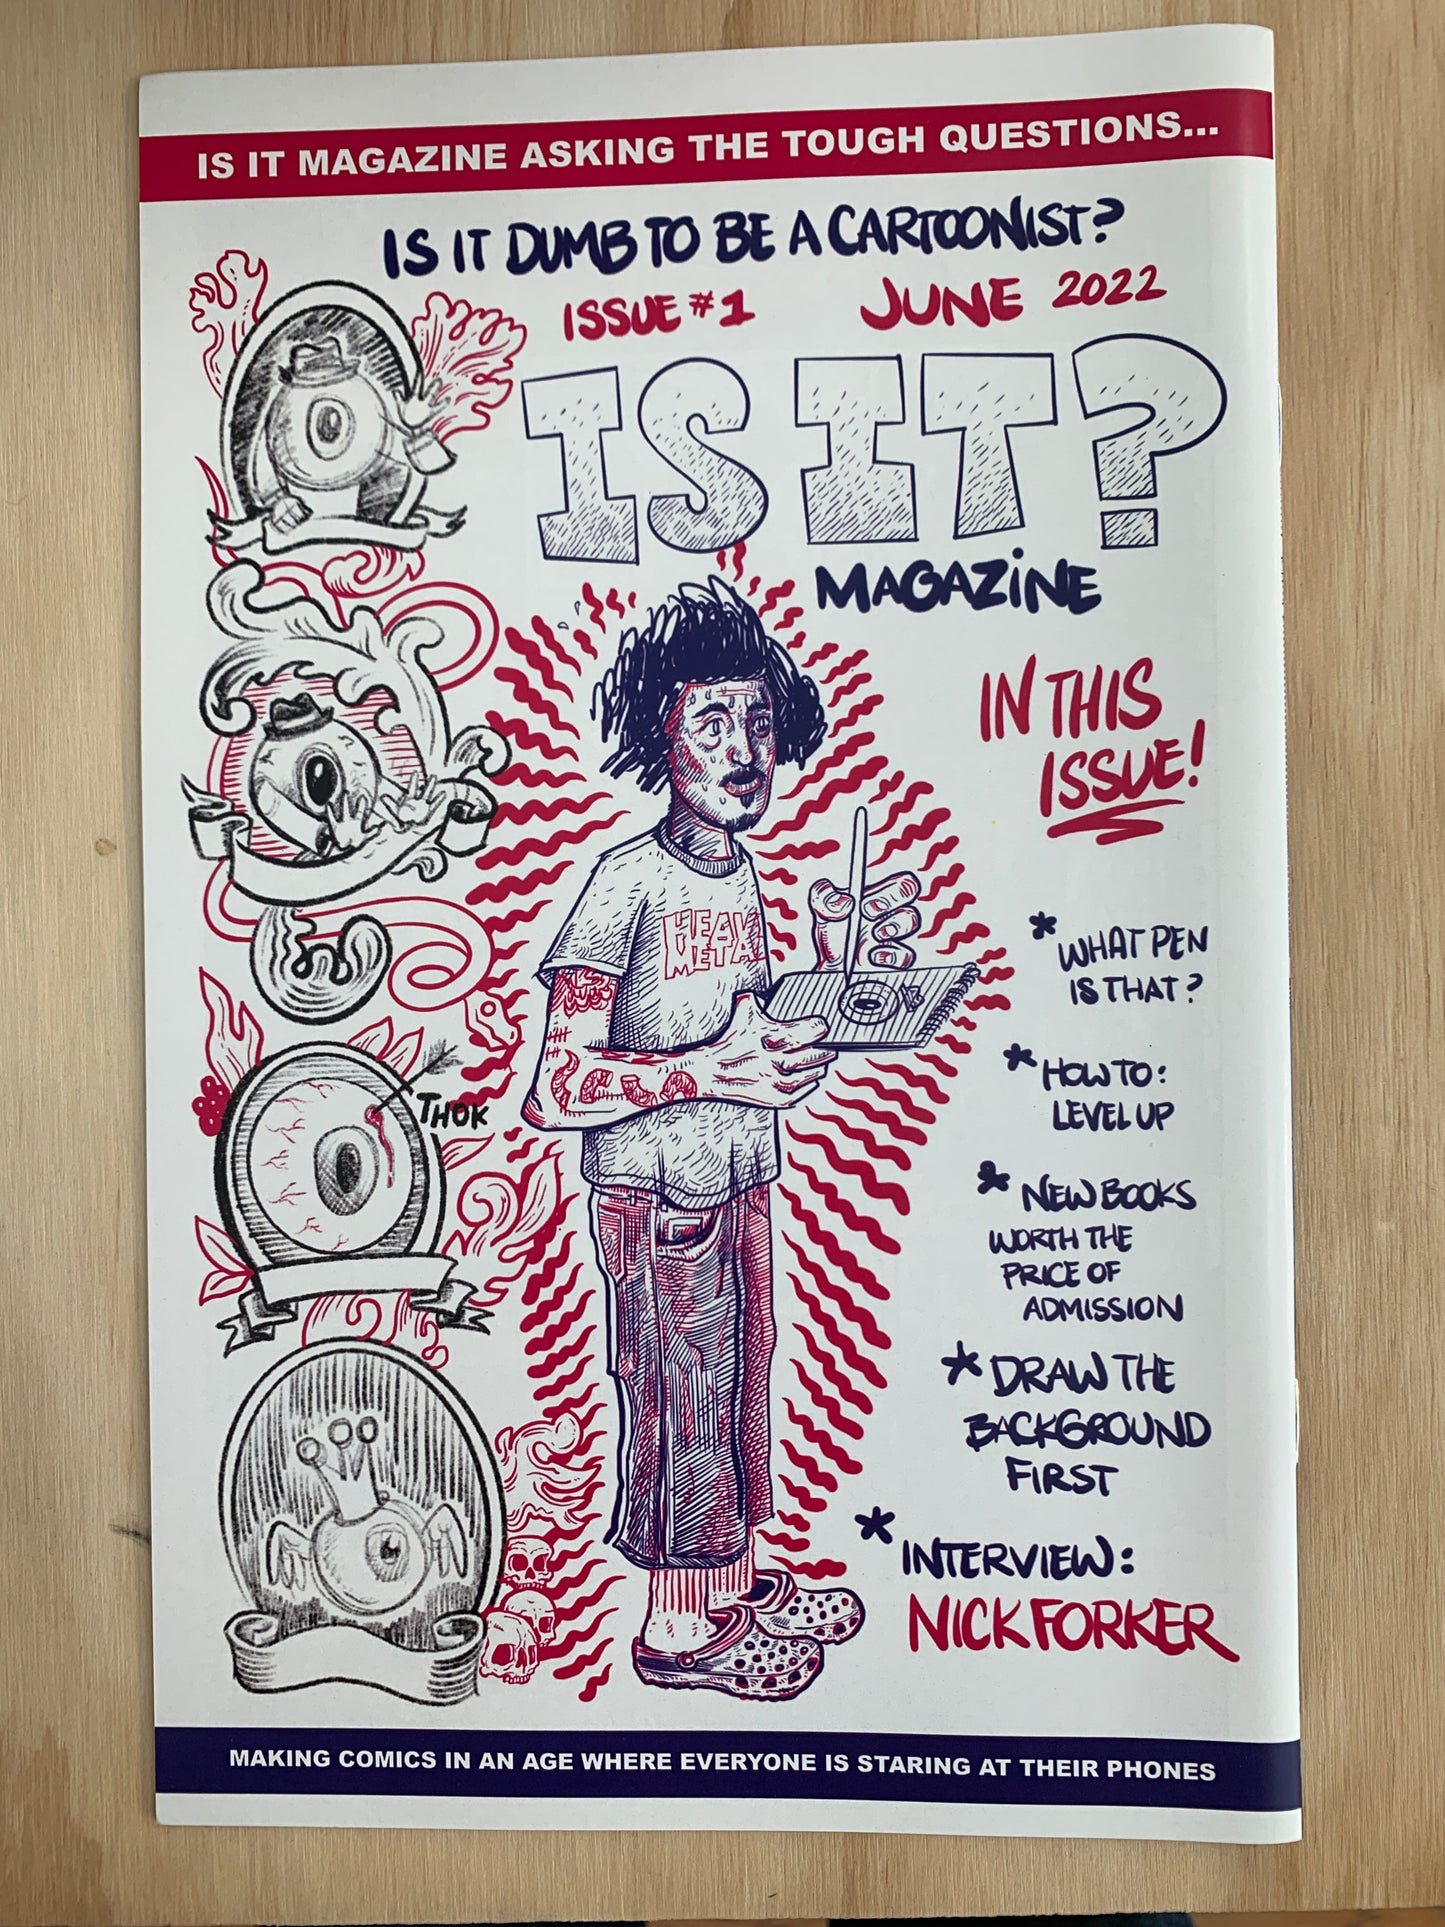 IS IT MAGAZINE ASKING THE TOUGH QUESTIONS...
IS IT DUMB TO BE A CARTOONIST?
ISSUE #1 JUNE 2022
IS IT?
MAGAZINE
IN THIS
ISSUE!
HEAVY
METAL
* WHAT PEN
IS THAT?
* HOW TO:
LEVEL UP
THOK
* NEW BOOKS
WORTH THE
PRICE OF
ADMISSION
* DRAW THE
BACKGROUND
FIRST
* INTERVIEW:
NICK FORKER
MAKING COMICS IN AN AGE WHERE EVERYONE IS STARING AT THEIR PHONES